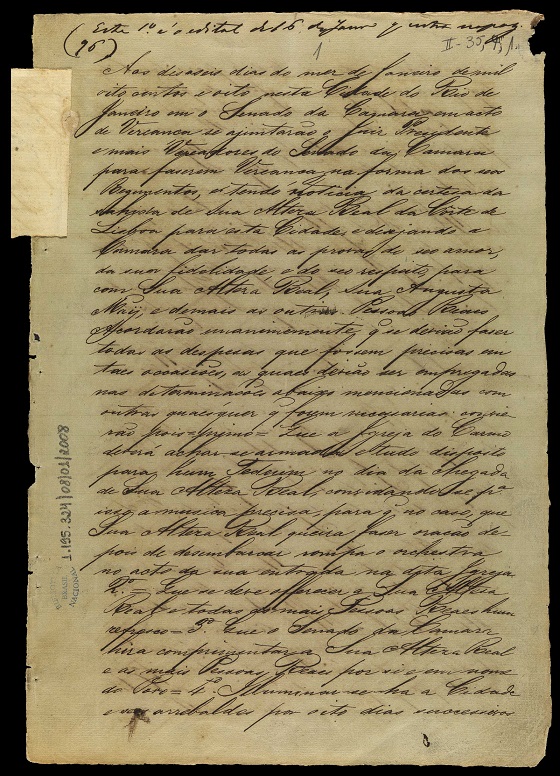 Este 1º é o edital de 16 de Janrº q
(26)
1
II-35,4,1
Aos desaseis dias do mez de Janeiro de mil
oito centos e oito nesta Cidade do Rio de
Janeiro em o Senado da Camara em acto
de Vereança se ajuntarão o Juiz Presidente
e mais Vereadores do Senado da Camara
para faserem Vereança na forma dos seos
Regimentos, e tendo noticia da certeza da
de Sua Alteza Real da Corte de
Lisboa para esta Cidade, e desejando a
Camara dar todas as provas de seo amor,
da sua fidelidade e do seo respeito para
com Sua Alteza Real, Sua Augusta
Maÿ, e demais as outras Pessoas Reaes
Acordarão unanimemente, q se devião faser
todas as despesas que fossem precisas em
taes occasiões, as quaes devião ser empregadas
nas determinações abaixo mencionadas com
outras quaesquer q forem necessarias
rão pois = primo = Que a Igreja do Carmo
deverá achar-se armada e tudo disposto
para hum Tedeum no dia da chegada
de Sua Alteza Real, convidando-se pª
isso a musica precisa, para q no caso, que
Sua Alteza Real queira faser oração de-
pois de desembarcar rompa o orchestra
no acto da sua entrada na dita Igreja
2º = Que se deve offerecer a Sua Alteza
Real e todas as mais Pessoas Reaes hum
refresco = 3º Que o Senado da Camara
hirá comprimentar a Sua Alteza Real
e as mais Pessoas Reaes por si e em nome
do Povo = 4º Illuminar-se-ha a Cidade
e seos arrebaldes por oito dias successivos
1.195.324/08/01/2008
BIBLIOTECA NACIONAL